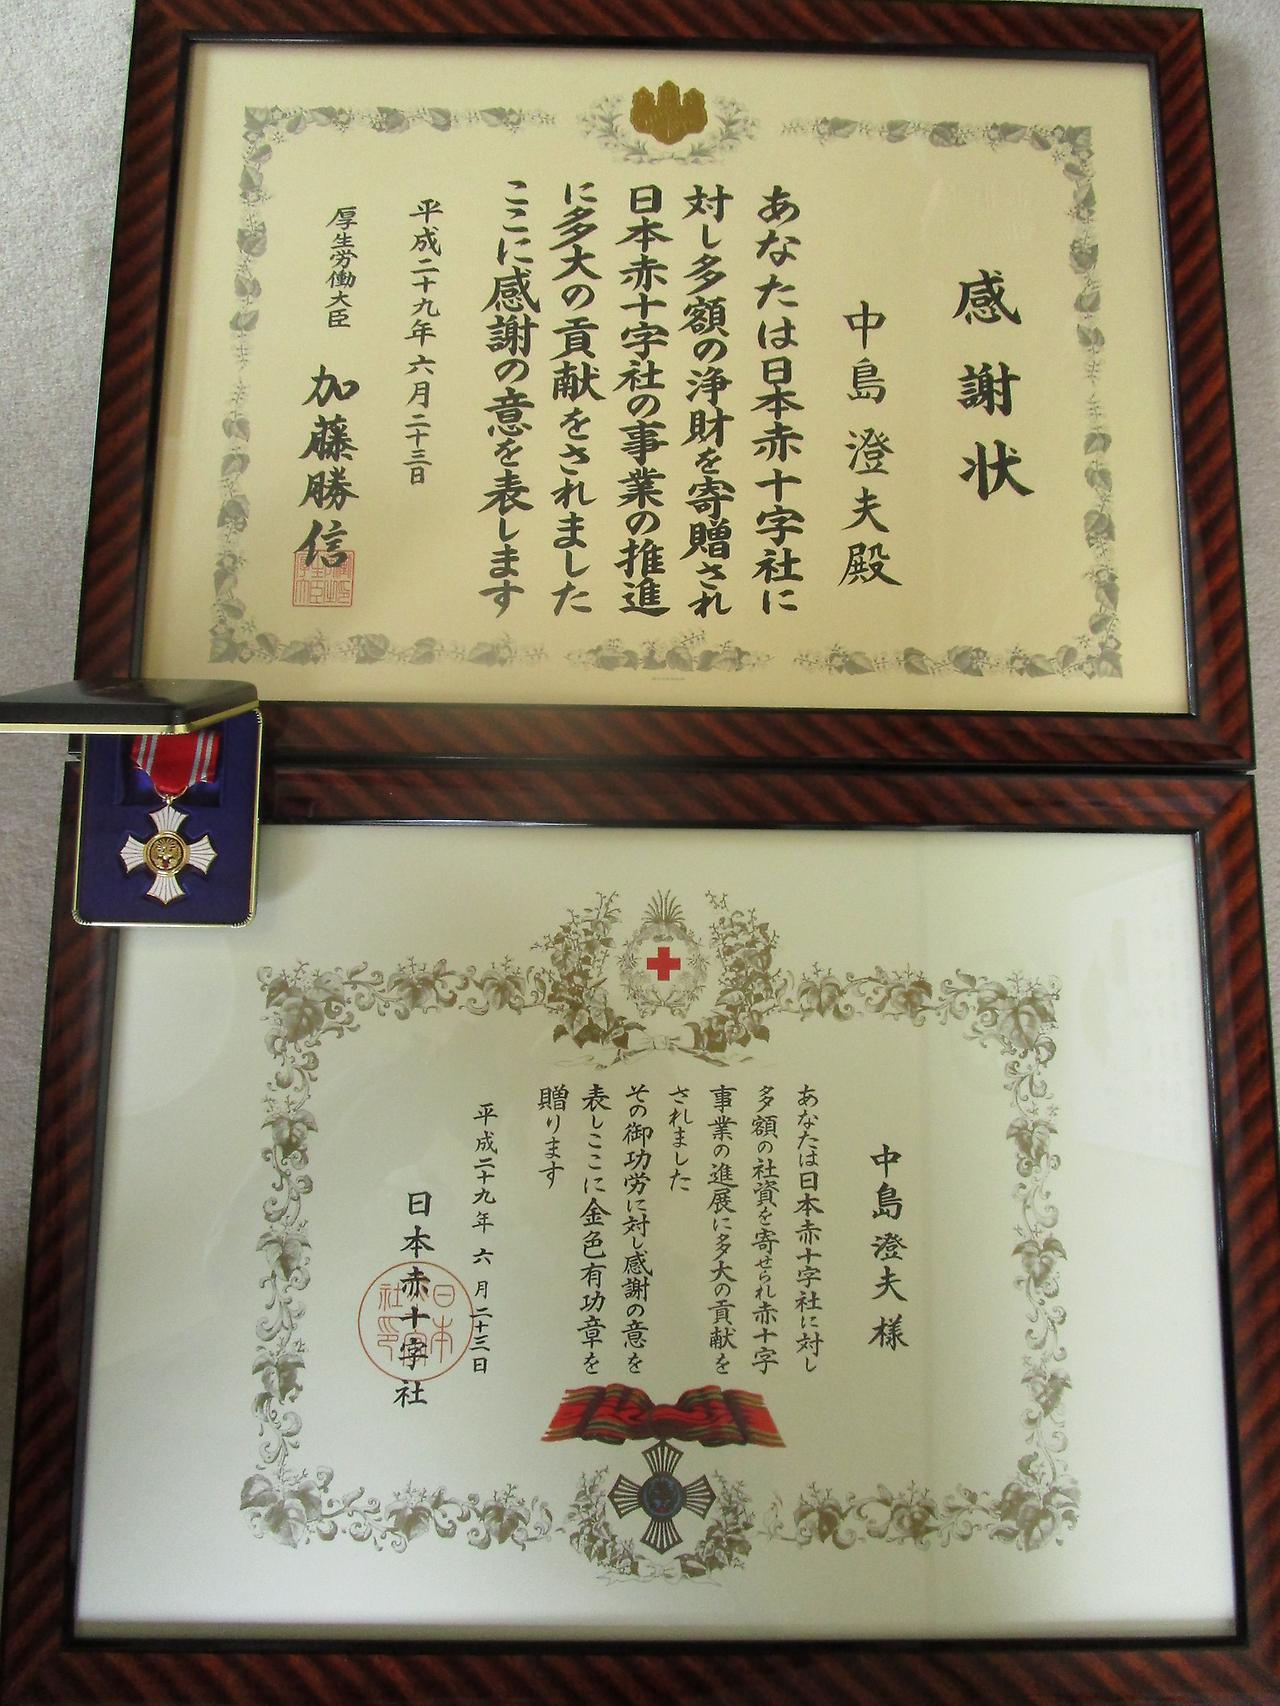 感謝状
中島澄夫殿
あなたは日本赤十字社に
対し多額の浄財を寄贈され
日本赤十字社の事業の推進
に多大の貢献をされました
ここに感謝の意を表します
平成二十九年六月二十三日
厚生労働大臣 加藤勝信
中島澄夫様
あなたは日本赤十字社に対し
多額の社資を寄せられ赤十字
事業の進展に多大の貢献を
されました
その御功労に対し感謝の意を
表しここに金色有功章を
贈ります
平成二十九年六月二十三日
日本赤十字社
日本赤十字社印